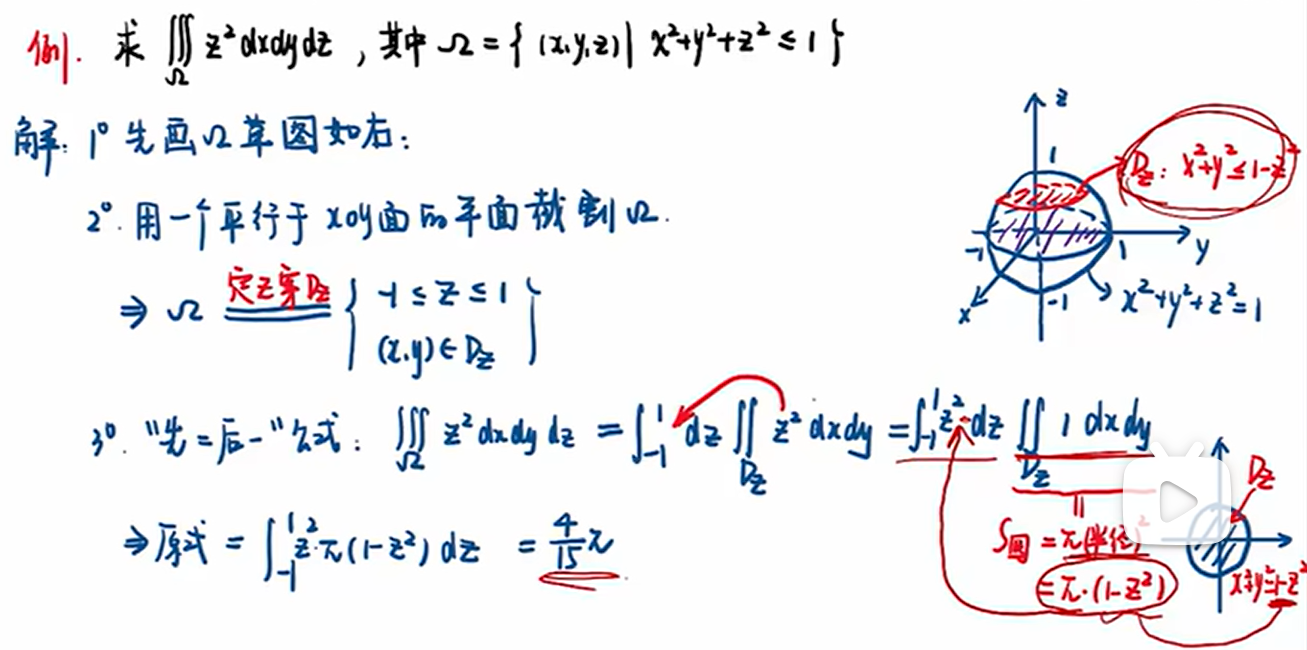 例. 求 ∭_Ω z² dxdydz , 其中 Ω = { (x,y,z) | x²+y²+z² ≤ 1 }
解: 1° 先画Ω草图如右:
2°. 用一个平行于 xoy面的平面截割Ω.
⇒ Ω 定z穿Dz { -1 ≤ z ≤ 1
(x,y)∈Dz }
3°. "先二后一"公式: ∭_Ω z² dxdy dz = ∫_{-1}^{1} dz ∬_{Dz} z² dxdy = ∫_{-1}^{1} z²·dz ∬_{Dz} 1 dxdy
⇒ 原式 = ∫_{-1}^{1} z²·π(1-z²) dz = 4/15 π
z
1
Dz: x²+y² ≤ 1-z²
-1
1
y
x
-1
x²+y²+z²=1
=
S圆 = π(半径)²
= π·(1-z²)
Dz
x²+y²=1-z²